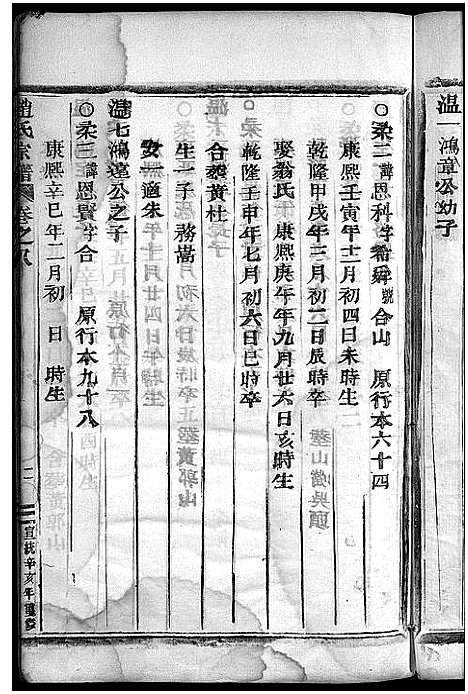 温一鴻章公幼子
○柔二諱恩科字希舜號合山　原行本六十四
康熙壬寅年十二月初四日未時生
乾隆甲戌年三月初二日辰時卒　塟山蛍吳頭
娶翁氏　康熙庚午年九月廿六日亥時生
乾隆壬申年七月初六日巳時卒
合塟黃杜
生一子務嵩
女一適朱
温七鴻逵公之子
○柔三諱恩賢字合　原行本九十八
康熙辛巳年二月初一日　時生
趙氏宗譜　卷之八
宣統辛亥年重修